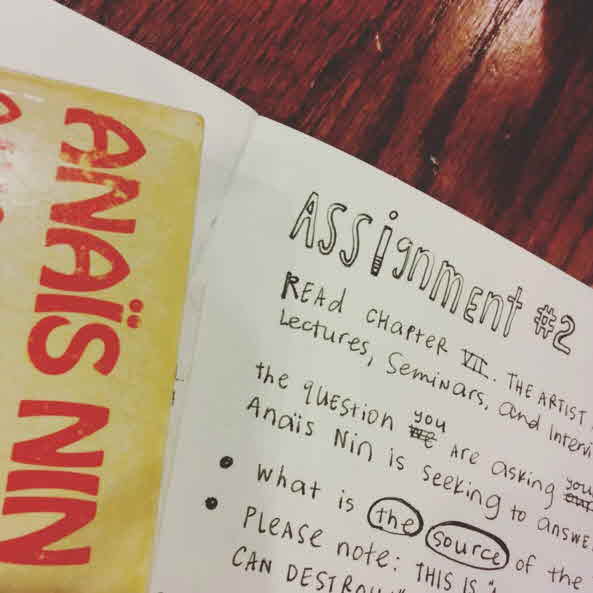 ANAÏS NIN
ASSiGNMENT #2
REAd CHAPTER VII. THE ARTIST
Lectures, Seminars, and
the question you we ARE asking
Anaïs Nin is seeking to answer
what is the source of the
PLEASE note: THIS IS
CAN DESTROY